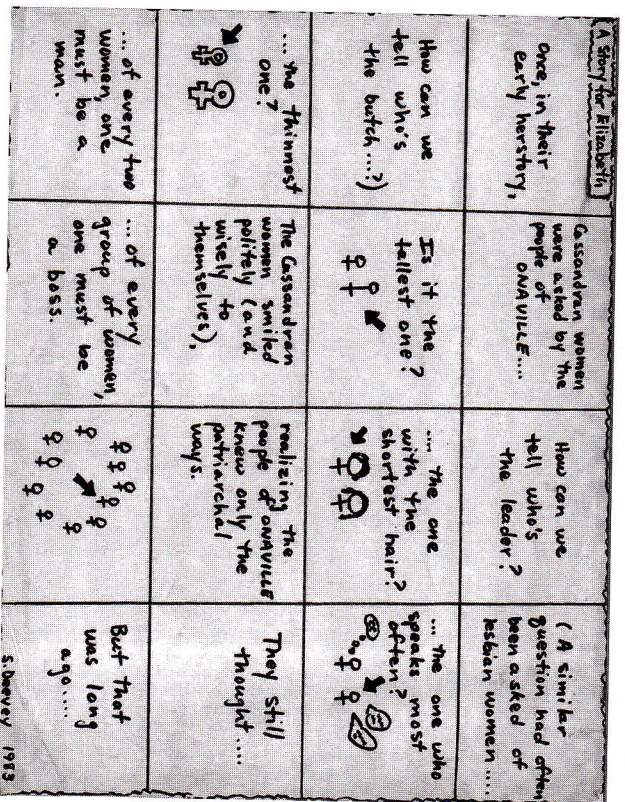 A Story for Elizabeth
Once, in their
early herstory,
Cassandran women
were asked by the
people of
ONAVILLE....
How can we
tell who's
the leader?
(A similar
question had often
been asked of
lesbian women....
How can we
tell who's
the butch...?)
Is it the
tallest one?
.... the one
with the
shortest hair?
... the one who
speaks most
often?
.... the thinnest
one?
The Cassandran
women smiled
politely (and
wisely to
themselves),
realizing the
people of ONAVILLE
knew only the
patriarchal
ways.
They still
thought....
... of every two
women, one
must be a
man.
... of every
group of women,
one must be
a boss.
But that
was long
ago.....
S. Deevey 1983